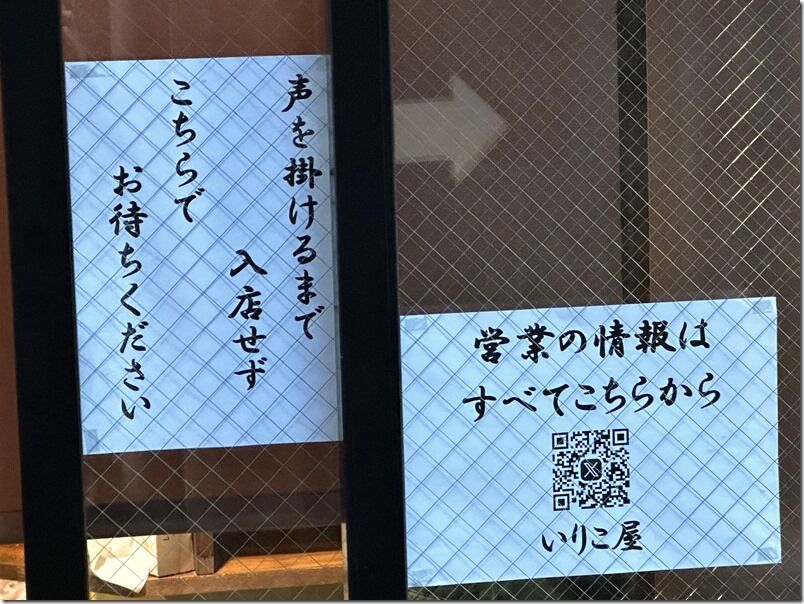 声を掛けるまで
入店せず
こちらで
お待ちください
営業の情報は
すべてこちらから
いりこ屋